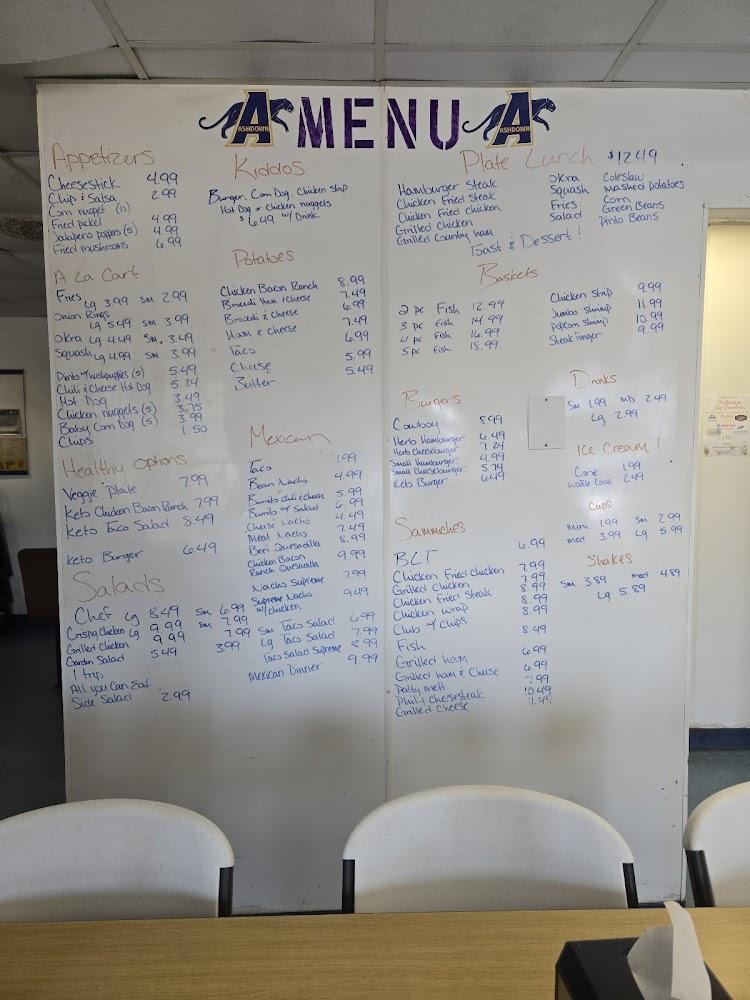 A ASHDOWN MENU A ASHDOWN
Appetizers
Cheesestick 4.99
Chip & Salsa 2.99
Corn nugget (10)
Fried pickel 4.99
Jalapeno poppers (5) 4.99
Fried mushrooms 6.99
A La Cart
Fries Lg 3.99 Sm 2.99
Onion Rings
Lg 5.49 Sm 3.99
Okra Lg 4.49 Sm. 3.49
Squash Lg 4.99 Sm 3.99
Pinto w/ hushpuppies (5) 5.49
Chili & Cheese Hot Dog 5.24
Hot Dog 3.49
Chicken nuggets (5) 3.75
Baby Corn Dog (5) 3.99
Chips 1.50
Healthy Options
Veggie Plate 7.99
Keto Chicken Bacon Ranch 7.99
Keto Taco Salad 8.49
Keto Burger 6.49
Salads
Chef Lg 8.49 Sm 6.99
Crispy Chicken Lg 9.99 Sm 7.99
Grilled Chicken 9.99 7.99
Garden Salad 5.49 3.99
1 trip
All you Can Eat
Side Salad 2.99
Kiddos
Burger, Corn Dog, Chicken Strip
Hot Dog or Chicken nuggets
$6.49 w/ Drink
Potatoes
Chicken Bacon Ranch 8.99
Brocoli Ham & Cheese 7.49
Brocoli & Cheese 6.99
Ham & Cheese 7.49
Taco 6.99
Cheese 5.99
Butter 5.49
Mexican
Taco 1.99
Bean Nacho 4.99
Burrito chili & cheese 5.99
Burrito w/ Salad 6.99
Cheese Nacho 4.49
Meat Nacho 7.49
Beef Quesadilla 8.99
Chicken Bacon
Ranch Quesadilla 9.99
Nacho Supreme 7.99
Supreme Nacho 9.49
w/ chicken
Sm Taco Salad 6.99
Lg Taco Salad 7.99
Taco Salad Supreme 8.99
Mexican Dinner 9.99
Plate Lunch $12.49
Hamburger Steak Okra Coleslaw
Chicken Fried Steak Squash Mashed Potatoes
Chicken Fried Chicken Fries Corn
Grilled Chicken Salad Green Beans
Grilled Country ham Pinto Beans
Toast & Dessert!
Baskets
2 pc Fish 12.99
3 pc Fish 14.99
4 pc Fish 16.99
5 pc Fish 18.99
Chicken Strip 9.99
Jumbo Shrimp 11.99
Popcorn Shrimp 10.99
Steak Finger 9.99
Burgers
Cowboy 8.99
Herb Hamburger 6.49
Herb Cheeseburger 7.24
Small Hamburger 4.99
Small Cheeseburger 5.74
Keto Burger 6.49
Drinks
Sm 1.99 MD 2.49
Lg 2.99
Ice Cream!
Cone 1.99
Waffle Cone 2.49
Cups
Mini 1.99 Sm 2.99
Med 3.99 Lg 5.99
Shakes
Sm 3.89 med 4.89
Lg 5.89
Sammiches
BLT 6.99
Chicken Fried Chicken 7.99
Grilled Chicken 7.99
Chicken Fried Steak 8.99
Chicken Wrap 8.99
Club w/ chips 8.99
Fish 8.49
Grilled ham 6.99
Grilled ham & Cheese 6.99
Patty melt 7.99
Phili Cheesesteak 10.49
Grilled Cheese